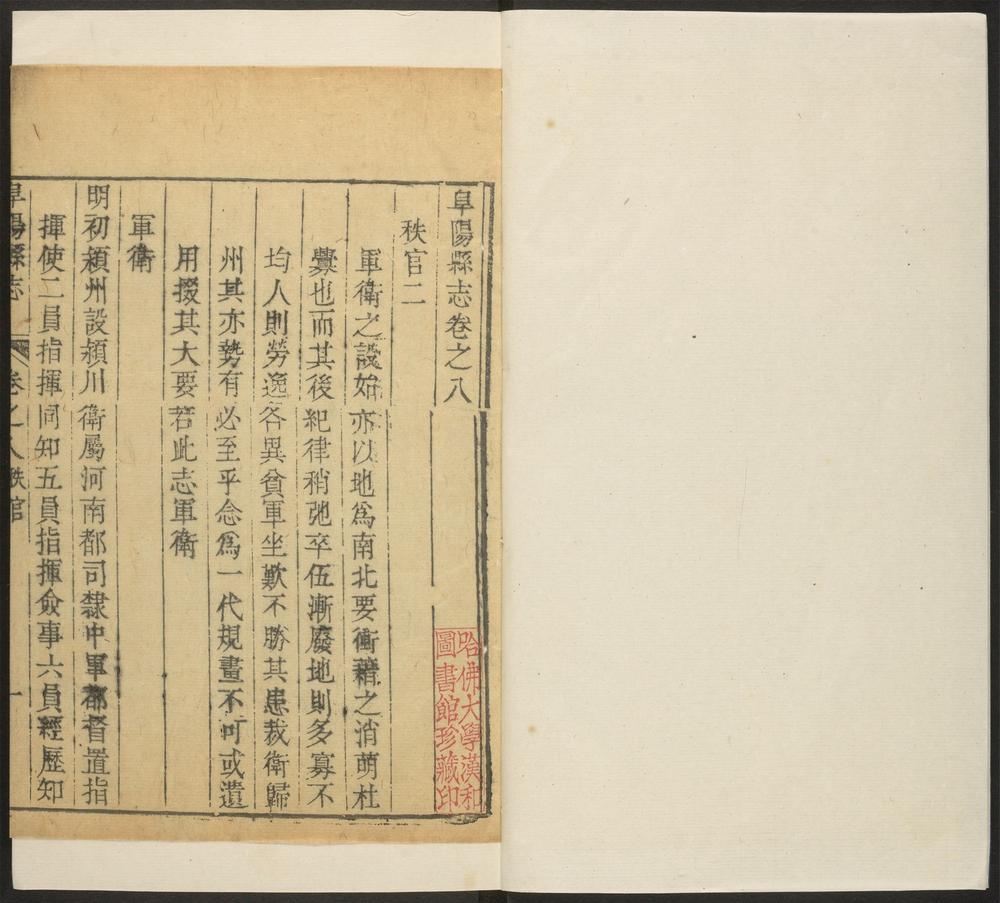 阜陽縣志卷之八
秩官二
軍衛之設始亦以地爲南北要衝藉之消萌杜
釁也而其後紀律稍弛卒伍漸廢地則多寡不
均人則勞逸各異貧軍坐歎不勝其患裁衛歸
州其亦勢有必至乎念爲一代規畫不可或遺
用掇其大要若此志軍衛
軍衛
明初潁州設潁川衛屬河南都司隸中軍都督置指
揮使二員指揮同知五員指揮僉事六員經歷知
阜陽縣志 卷之八 秩官 一
哈佛大學漢和
圖書館珍藏印